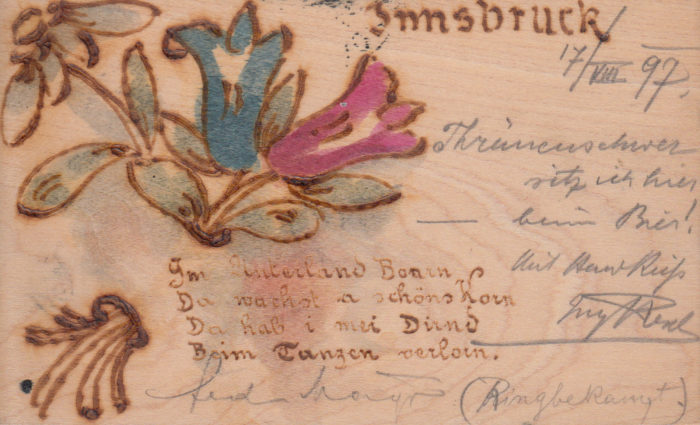 Innsbruck
17/VIII 97.
Thränenschwer
sitz ich hier
— beim Bier!
Mit Hand Kuss
Im Unterland Boarn
Da wachst a schöns Korn
Da hab i mei Diend
Beim Tanzen verloin.
(Ringbekampf.)